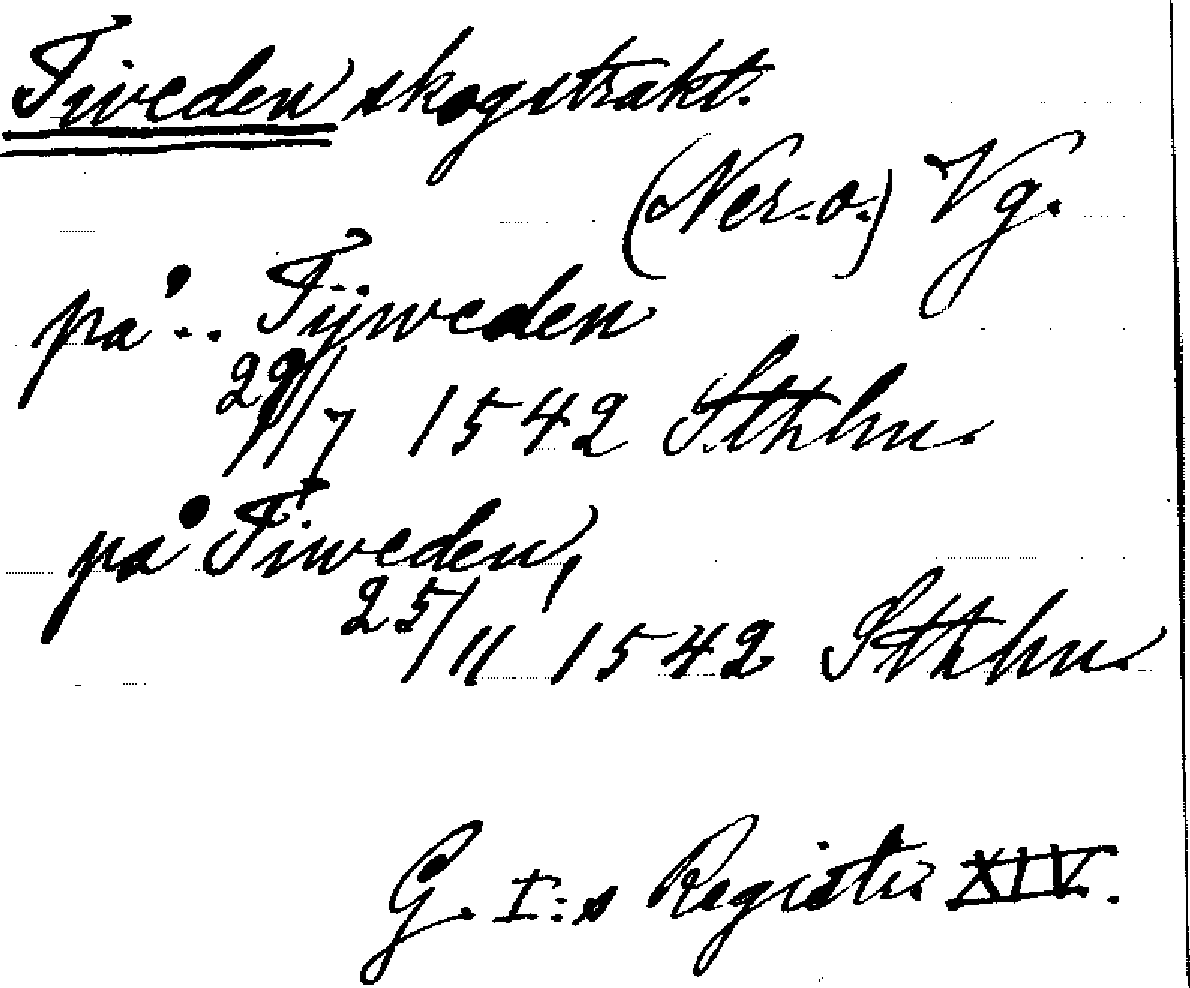 Tiveden skogstrakt.
(Ner. o.) Vg.
på .. Tijweden
29/7 1542 Sthlm.
på Tiweden,
25/11 1542 Sthlm.
G. I:s Registr. XIV.